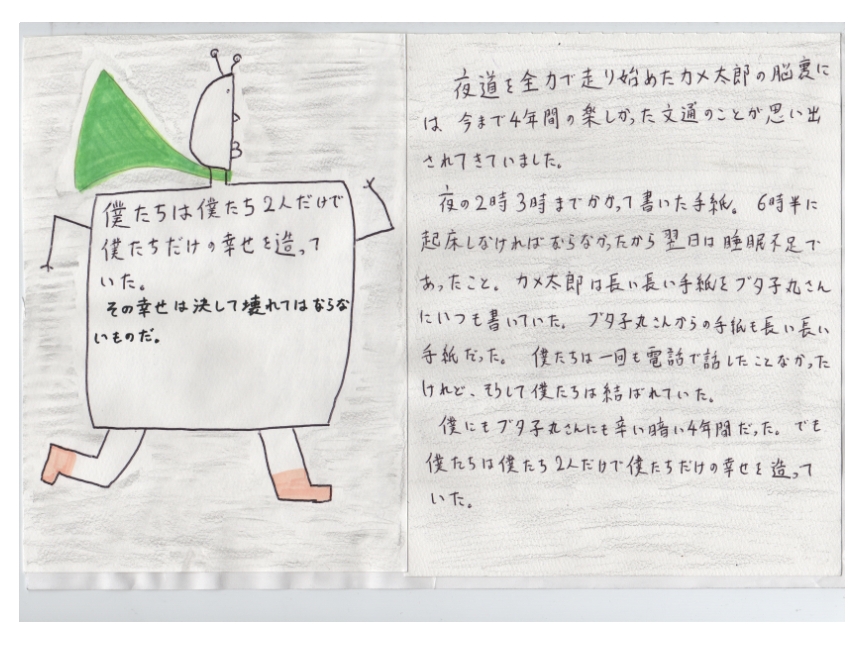 僕たちは僕たち2人だけで
僕たちだけの幸せを造って
いた。
その幸せは決して壊れてはならな
いものだ。
夜道を全力で走り始めたカメ太郎の脳裏に
は 今まで4年間の楽しかった文通のことが思い出
されてきていました。
夜の2時3時までかかって書いた手紙。 6時半に
起床しなければならなかったから翌日は睡眠不足で
あったこと。 カメ太郎は長い長い手紙をブタ子丸さん
にいつも書いていた。 ブタ子丸さんからの手紙も長い長い
手紙だった。 僕たちは一回も電話で話したことなかった
けれど、そうして僕たちは結ばれていた。
僕にもブタ子丸さんにも辛い暗い4年間だった。でも
僕たちは僕たち2人だけで僕たちだけの幸せを造って
いた。